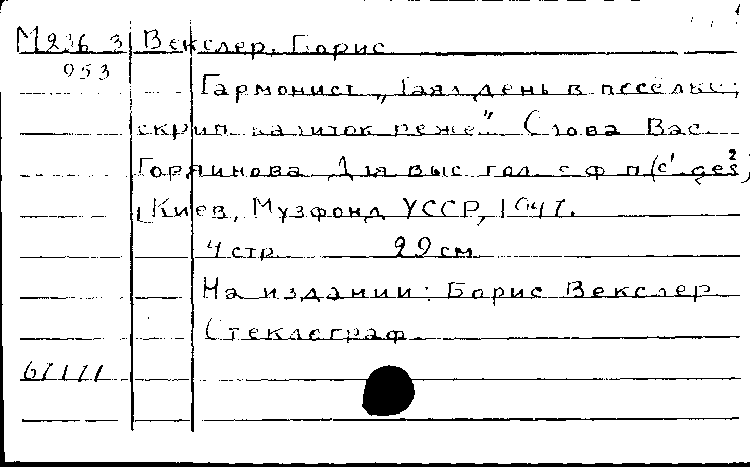 М236 3 Векслер, Борис
953
Гармонист „Таял день в поселке;
скрип калиток реже". Слова Вас.
Горяинова Для выс. гол. с ф-п (c'-ges²)
Киев, Музфонд УССР, 1947.
4 стр. 29 см
На издании: Борис Векслер
Стеклограф.
67171